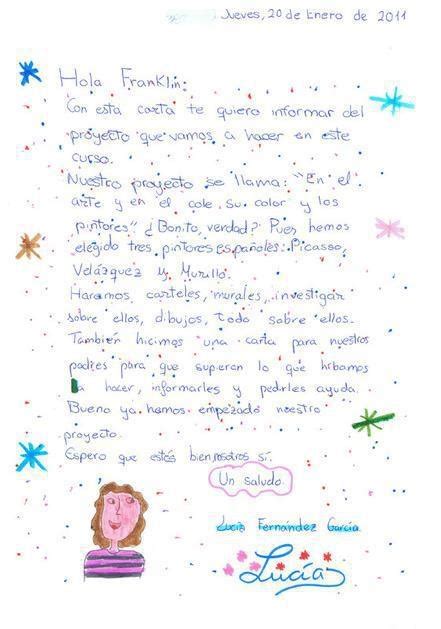 Jueves, 20 de Enero de 2011
Hola Franklin:
Con esta carta te quiero informar del
proyecto que vamos a hacer en este
curso.
Nuestro proyecto se llama: "En el
arte y en el cole su color y los
pintores" ¿Bonito, verdad? Pues hemos
elegido tres pintores españoles: Picasso,
Velázquez y Murillo.
Haremos carteles, murales, investigar
sobre ellos, dibujos, todo sobre ellos.
También hicimos una carta para nuestros
padres para que supieran lo que íbamos
a hacer, informarles y pedirles ayuda.
Bueno ya hemos empezado nuestro
proyecto.
Espero que estés bien, nosotros sí.
Un saludo.
Lucía Fernández García
Lucía